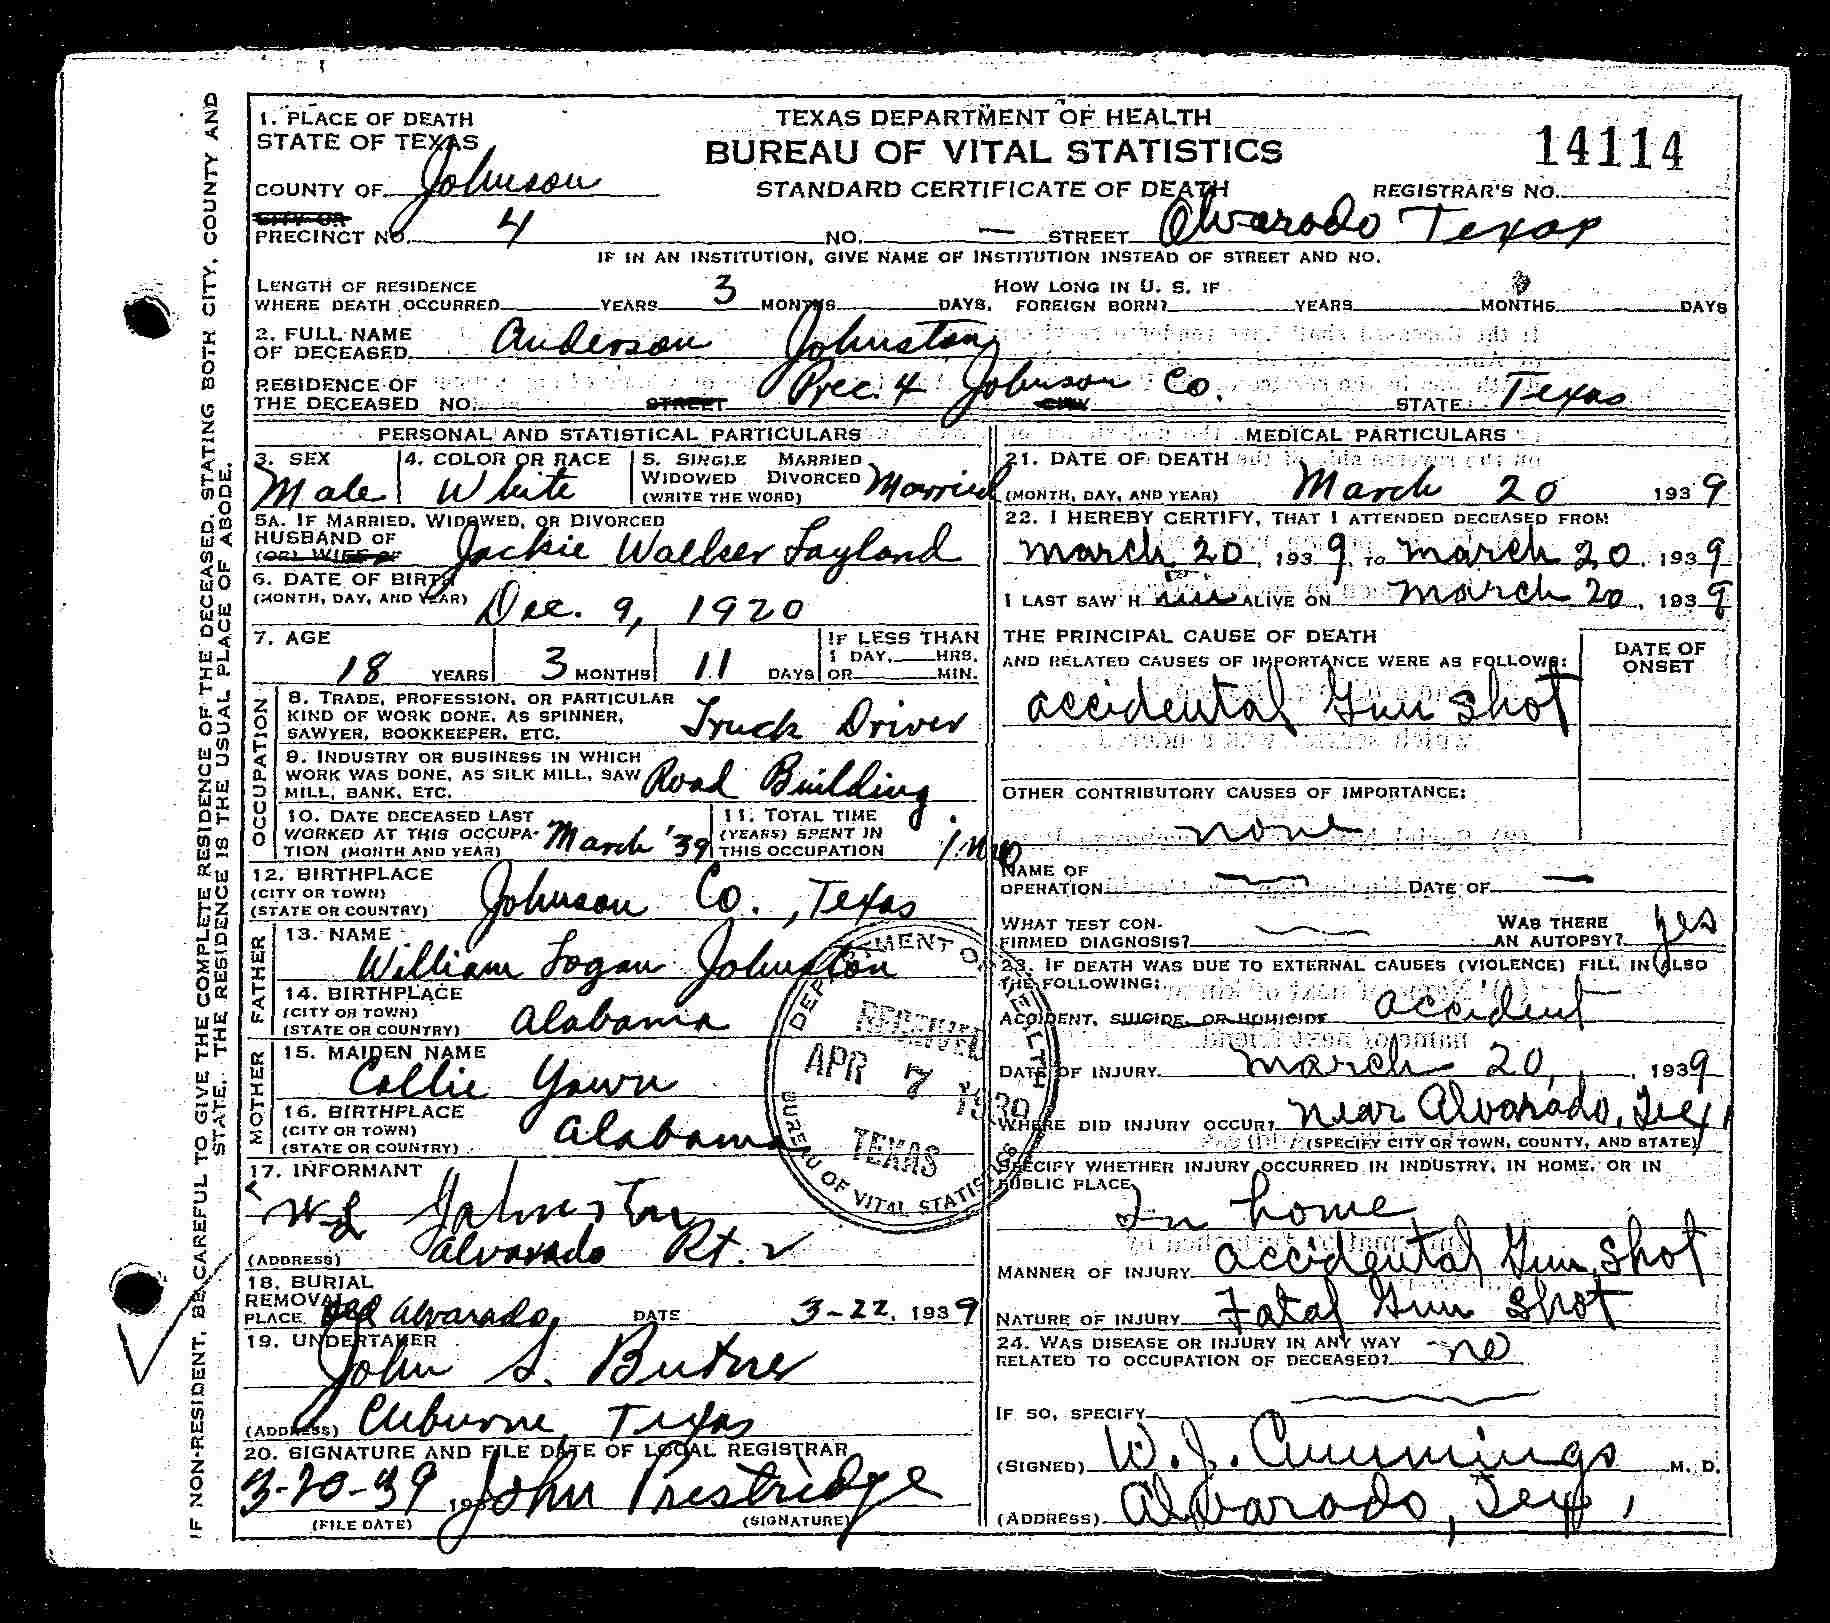 1. PLACE OF DEATH
STATE OF TEXAS
COUNTY OF Johnson
CITY OR
PRECINCT NO. 4
TEXAS DEPARTMENT OF HEALTH
BUREAU OF VITAL STATISTICS
STANDARD CERTIFICATE OF DEATH
14114
REGISTRAR'S NO.
NO. — STREET Alvarado Texas
IF IN AN INSTITUTION, GIVE NAME OF INSTITUTION INSTEAD OF STREET AND NO.
LENGTH OF RESIDENCE
WHERE DEATH OCCURRED YEARS 3 MONTHS DAYS.
HOW LONG IN U. S. IF
FOREIGN BORN? YEARS MONTHS DAYS
2. FULL NAME
OF DECEASED Anderson Johnston
RESIDENCE OF
THE DECEASED NO. STREET Prec. 4 Johnson Co. CITY STATE Texas
PERSONAL AND STATISTICAL PARTICULARS
3. SEX
Male
4. COLOR OR RACE
White
5. SINGLE MARRIED
WIDOWED DIVORCED
(WRITE THE WORD) Married
5A. IF MARRIED, WIDOWED, OR DIVORCED
HUSBAND OF
(OR) WIFE OF Jackie Walker Layland
6. DATE OF BIRTH
(MONTH, DAY, AND YEAR) Dec. 9, 1920
7. AGE
18 YEARS 3 MONTHS 11 DAYS
IF LESS THAN
1 DAY, HRS.
OR MIN.
OCCUPATION
8. TRADE, PROFESSION, OR PARTICULAR
KIND OF WORK DONE, AS SPINNER,
SAWYER, BOOKKEEPER, ETC. Truck Driver
9. INDUSTRY OR BUSINESS IN WHICH
WORK WAS DONE, AS SILK MILL, SAW
MILL, BANK, ETC. Road Building
10. DATE DECEASED LAST
WORKED AT THIS OCCUPA-
TION (MONTH AND YEAR) March '39
11. TOTAL TIME
(YEARS) SPENT IN
THIS OCCUPATION 1 mo
12. BIRTHPLACE
(CITY OR TOWN)
(STATE OR COUNTRY) Johnson Co., Texas
FATHER
13. NAME
William Logan Johnston
14. BIRTHPLACE
(CITY OR TOWN)
(STATE OR COUNTRY) Alabama
MOTHER
15. MAIDEN NAME
Collie Yown
16. BIRTHPLACE
(CITY OR TOWN)
(STATE OR COUNTRY) Alabama
17. INFORMANT
W L Johnston
(ADDRESS) Alvarado Rt. 2
18. BURIAL
REMOVAL
PLACE Alvarado DATE 3-22, 1939
19. UNDERTAKER
John S. Butner
(ADDRESS) Cleburne, Texas
20. SIGNATURE AND FILE DATE OF LOCAL REGISTRAR
3-20-39 193 John Prestridge
(FILE DATE) (SIGNATURE)
MEDICAL PARTICULARS
21. DATE OF DEATH
(MONTH, DAY, AND YEAR) March 20 1939
22. I HEREBY CERTIFY, THAT I ATTENDED DECEASED FROM
March 20, 1939, TO March 20, 1939
I LAST SAW H im ALIVE ON March 20, 1939
THE PRINCIPAL CAUSE OF DEATH
AND RELATED CAUSES OF IMPORTANCE WERE AS FOLLOWS:
DATE OF
ONSET
accidental Gun Shot
OTHER CONTRIBUTORY CAUSES OF IMPORTANCE:
none
NAME OF
OPERATION DATE OF —
WHAT TEST CON-
FIRMED DIAGNOSIS?
WAS THERE
AN AUTOPSY? yes
23. IF DEATH WAS DUE TO EXTERNAL CAUSES (VIOLENCE) FILL IN ALSO
THE FOLLOWING:
ACCIDENT, SUICIDE, OR HOMICIDE accident
DATE OF INJURY March 20, 1939
WHERE DID INJURY OCCUR? Near Alvarado, Tex,
(SPECIFY CITY OR TOWN, COUNTY, AND STATE)
SPECIFY WHETHER INJURY OCCURRED IN INDUSTRY, IN HOME, OR IN
PUBLIC PLACE
In home
MANNER OF INJURY accidental Gun Shot
NATURE OF INJURY Fatal Gun Shot
24. WAS DISEASE OR INJURY IN ANY WAY
RELATED TO OCCUPATION OF DECEASED? no
IF SO, SPECIFY
(SIGNED) W. J. Cummings M. D.
(ADDRESS) Alvarado, Tex,
DEPARTMENT OF HEALTH
RECEIVED
APR 7 1939
TEXAS
BUREAU OF VITAL STATISTICS
IF NON-RESIDENT, BE CAREFUL TO GIVE THE COMPLETE RESIDENCE OF THE DECEASED, STATING BOTH CITY, COUNTY AND
STATE. THE RESIDENCE IS THE USUAL PLACE OF ABODE.